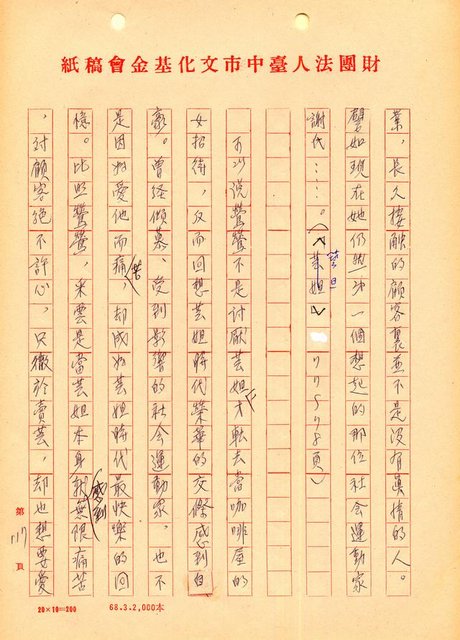 財團法人臺中市文化基金會稿紙
業，長久接觸的顧客裏並不是沒有眞情的人。
譬如現在她仍然第一個想起的那位社會運動家
謝代……。（《藝旦芸姐》 7798頁）
可以說鶯鶯不是討厭芸姐才転去當咖啡屋的
女招待，反而回想芸姐時代榮華的交際感到自
豪。曾経傾慕、受到影響的社会運動家，也不
是因為愛他而痛苦，却成為芸姐時代最快樂的回
憶。比照鶯鶯，采雲是當芸姐本身就感到無限痛苦
，対顧客絕不許心，只徹於賣芸，却也想要愛
第 117 頁
20×10=200
68.3.2,000本